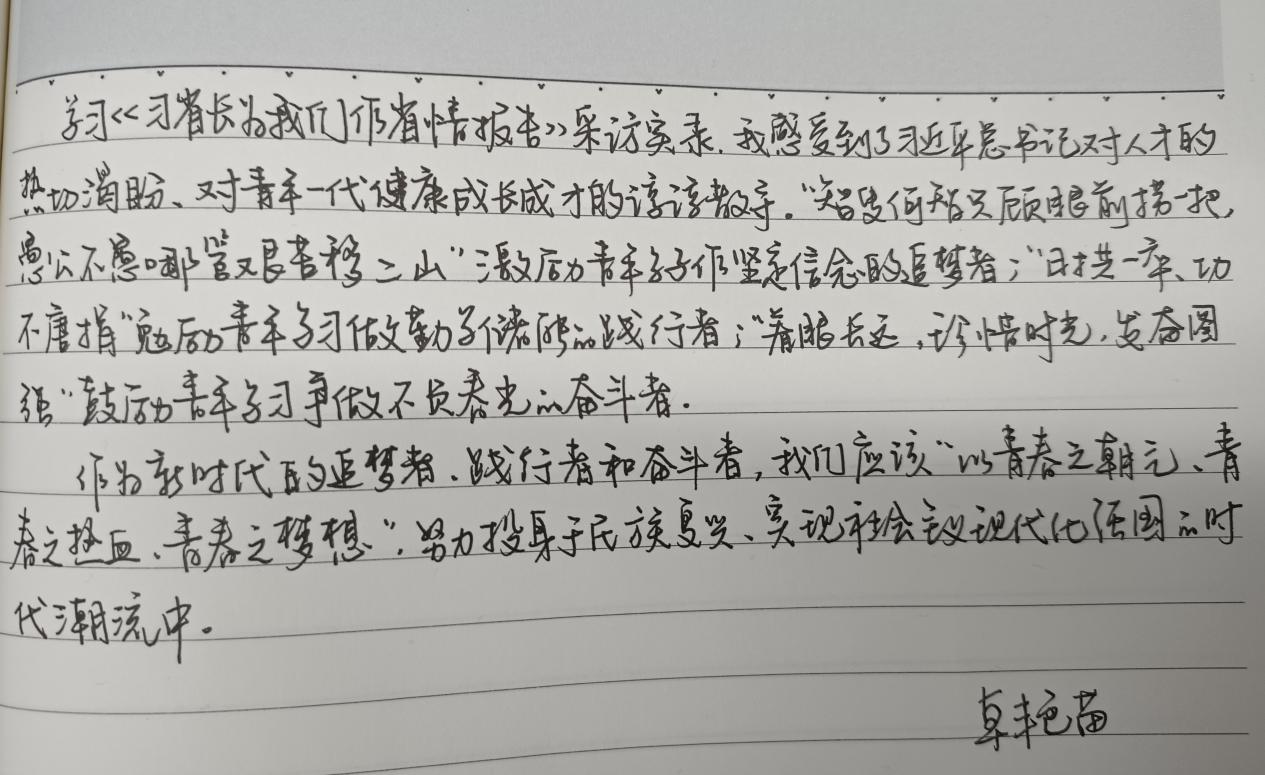 学习《习省长为我们作省情报告》采访实录，我感受到了习近平总书记对人才的
热切渴盼、对青年一代健康成长成才的谆谆教导。“智叟何智只顾眼前捞一把，
愚公不愚哪管艰苦移二山”激励青年学子作坚定信念的追梦者；“日拱一卒、功
不唐捐”勉励青年学习做勤学储能的践行者；“着眼长远，珍惜时光，发奋图
强”鼓励青年学习争做不负春光的奋斗者.
作为新时代的追梦者、践行者和奋斗者，我们应该“以青春之朝元、青
春之热血、青春之梦想”，努力投身于民族复兴、实现社会主义现代化强国的时
代潮流中。
卓艳苗